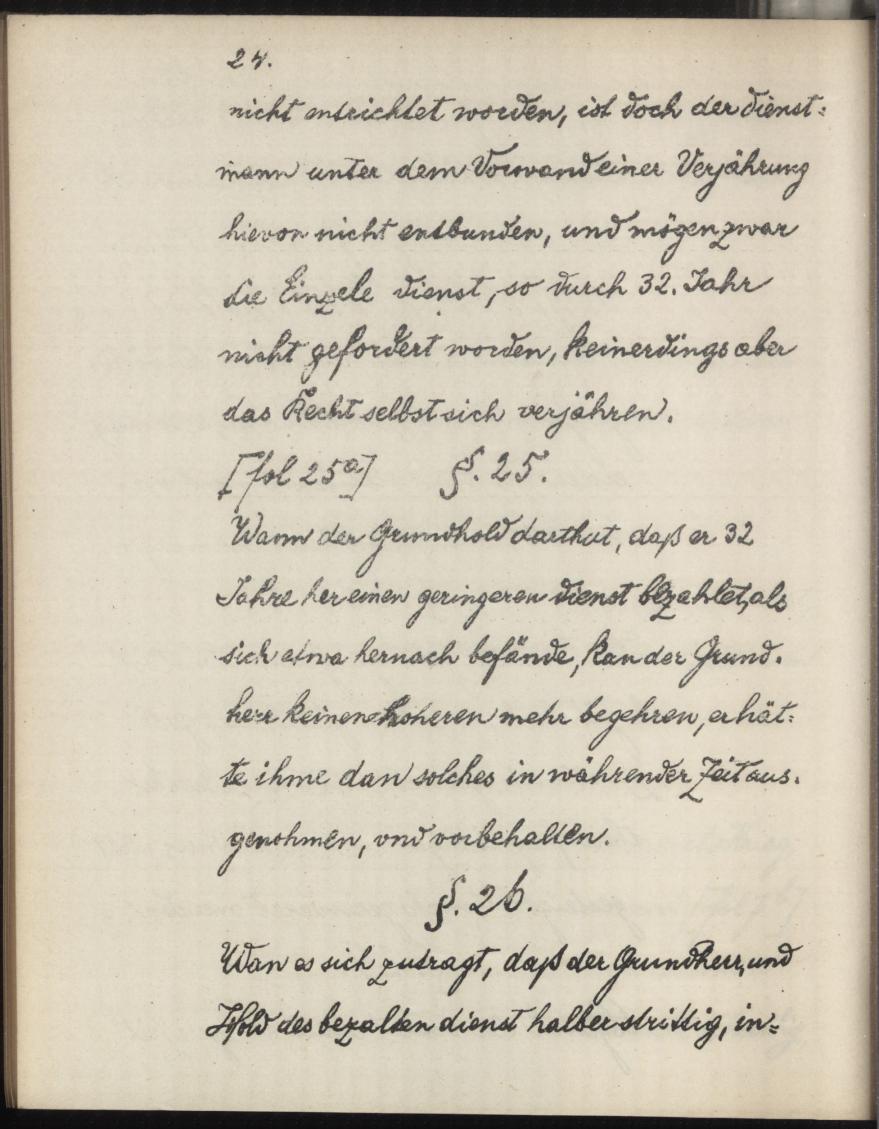 24.
nicht entrichtet worden, ist doch der dienst=
mann unter dem Vorwand einer Verjährung
hievon nicht entbunden, und mögen zwar
die Einzele dienst, so durch 32. Jahr
nicht gefordert worden, keinerdings aber
das Recht selbst sich verjähren.
[fol 25a] §. 25.
Wann der Grundhold darthut, daß er 32
Jahre her einen geringeren dienst bezahlet, als
sich etwa hernach befände, kan der Grund.
herr keinen höheren mehr begehren, er hät=
te ihme dan solches in währender Zeit aus.
genohmen, vnd vorbehalten.
§. 26.
Wan es sich zutragt, daß der Grundherr, und
des bezalten dienst halber strittig, in=